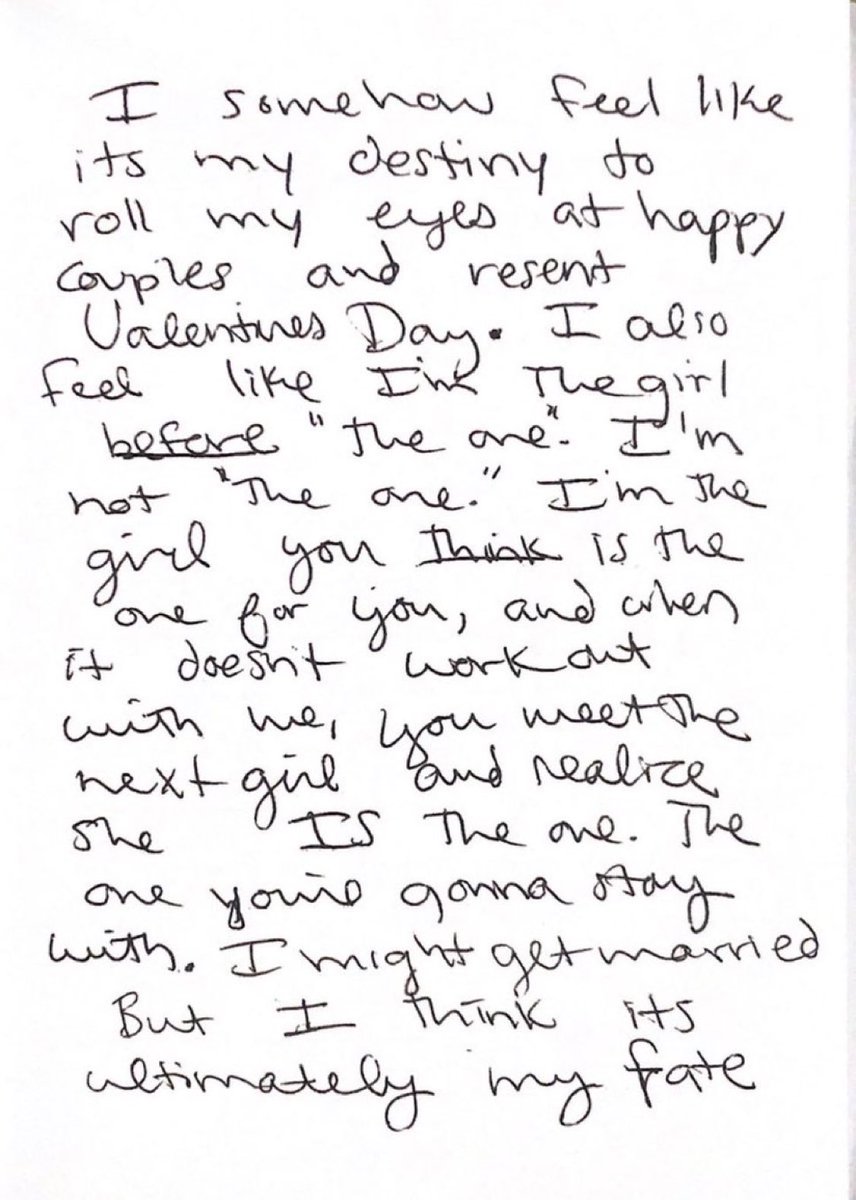 I somehow feel like
its my destiny to
roll my eyes at happy
couples and resent
Valentines Day. I also
feel like I'm the girl
before "the one". I'm
not "the one." I'm the
girl you think is the
one for you, and when
it doesn't work out
with me, you meet the
next girl and realize
she IS the one. The
one you're gonna stay
with. I might get married
But I think its
ultimately my fate